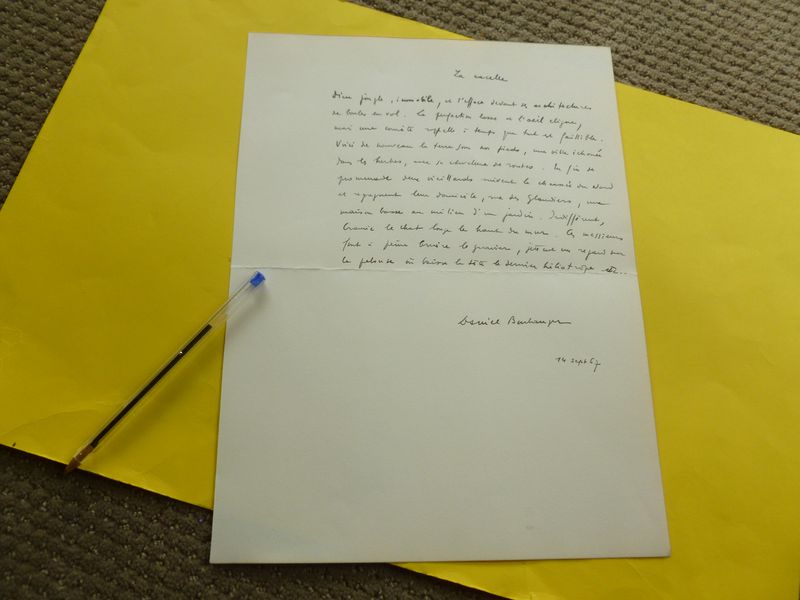 La nacelle
Dieu jongle, immobile, et s'efface devant ses architectures
de boules en vol. La perfection lasse et l'oeil cligne,
mais une comète rappelle à temps que tout est faillible.
Voici de nouveau la terre sous nos pieds, une ville échouée
dans les herbes, avec sa chevelure de routes. En fin de
promenade deux vieillards suivent la chaussée du Nord
et regagnent leur domicile, rue des Glandiers, une
maison basse au milieu d'un jardin. Indifférent,
le chat longe le haut du mur. Ces messieurs
font à peine bruire le gravier, jettent un regard sur
la pelouse où baisse la tête le dernier héliotrope
Daniel Boulanger
14 sept 67